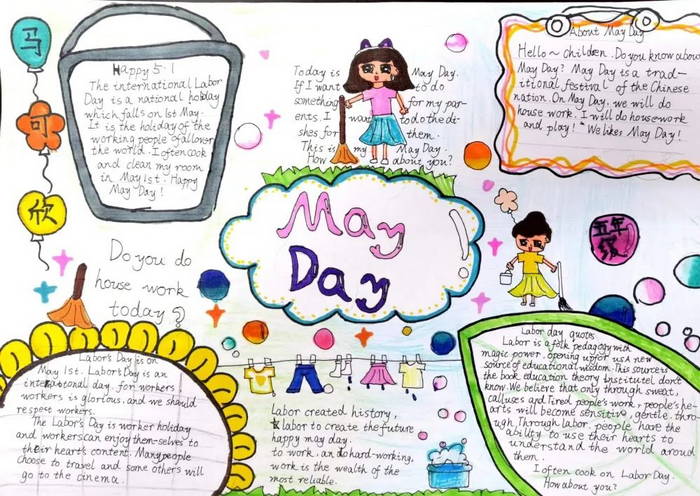 马
可
欣
Happy 5·1
The international Labor
Day is a national holiday
which falls on 1st May.
It is the holiday of the
working people of allover
the world. I often cook
and clean my room
in May 1st. Happy
May Day!
Today is May Day.
If I want to do
something for my par-
ents. I want to do the di-
shes for them.
This is my May Day.
How about you?
About May Day
Hello~ children. Do you know about
May Day? May Day is a trad-
itional festival of the Chinese
nation. On May Day, we will do
house work. I will do housework
and play! We likes May Day!
May
Day
五年
级
Do you do
house work
today?
Labor's Day is on
May 1st. Labor's Day is an
international day. for workers.
workers is glorious, and we should
respect workers.
The Labor's Day is worker holiday
and workers can enjoy them-selves to
their heart's content. Many people
choose to travel and some others will
go to the cinema.
Labor created history,
labor to create the future
happy may day.
to work, an hard-working,
work is the wealth of the
most reliable.
Labor day quotes
Labor is a folk pedagogy with
magic power, opening up for us a new
source of educational wisdom. This source is
the book education theory institutel don't
know. We believe that only through sweat,
calluses and Tired people's work, people's he-
arts will become sensitive, gentle. thr-
ough. Through labor, people have the
ability to use their hearts to
understand the world around
them.
I often cook on Labor Day.
How about you?